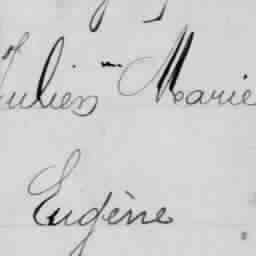 Julien Marie
Eugène